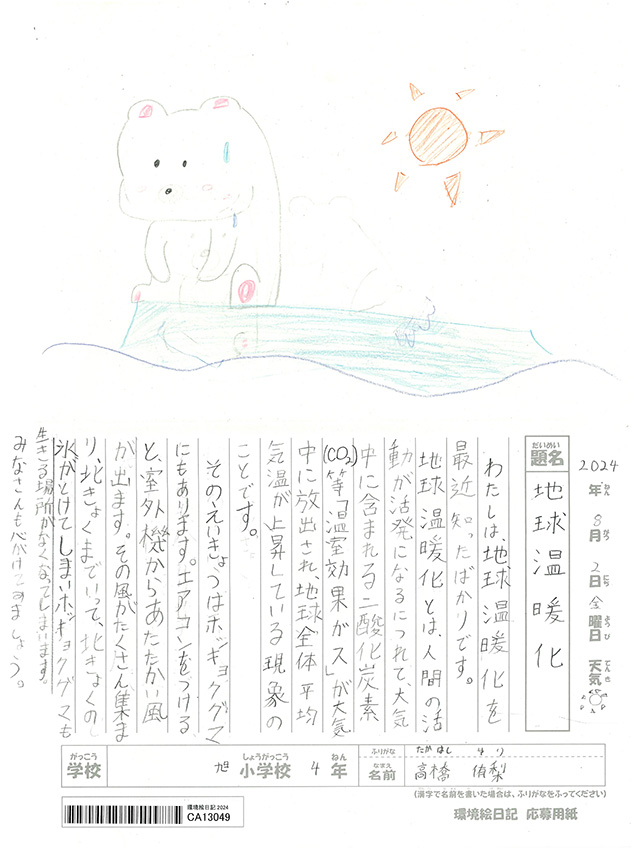 2024年 8月 2日 金曜日 天気
だいめい
題名
地球温暖化
わたしは、地球温暖化を
最近知ったばかりです。
地球温暖化とは、人間の活
動が活発になるにつれて、大気
中に含まれる二酸化炭素
(CO2)等「温室効果ガス」が大気
中に放出され、地球全体平均
気温が上昇している現象の
ことです。
そのえいきょうはホッキョクグマ
にもあります。エアコンをつける
と、室外機からあたたかい風
が出ます。その風がたくさん集ま
り、北きょくまでいって、北きょくの
氷がとけてしまいホッキョクグマも
生きる場所がなくなってしまいます。
みなさんも心がけてみましょう。
がっこう しょうがっこう ねん
学校 旭 小学校 4年
ふりがな たかはし
なまえ
名前 高橋 侑梨
(漢字で名前を書いた場合は、ふりがなをふってください)
環境絵日記 2024
CA13049
環境絵日記 応募用紙